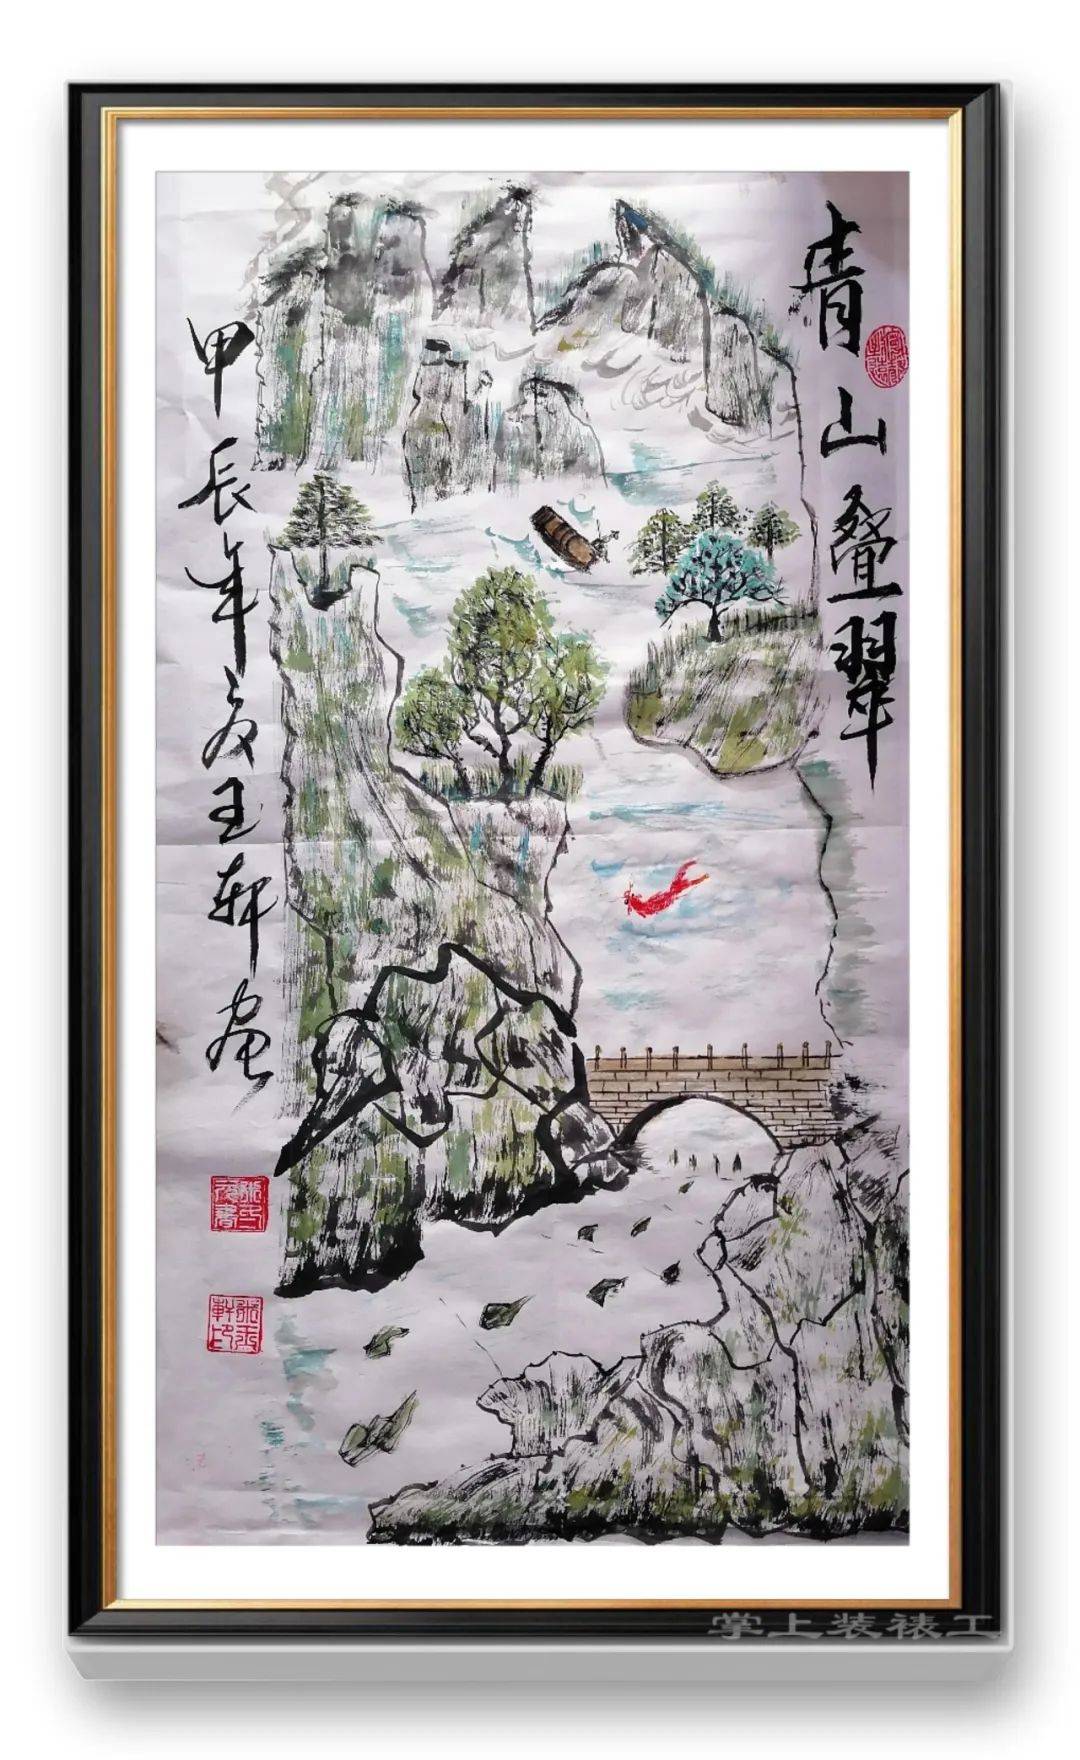 青山叠翠
甲辰年夏玉轩画
掌上装裱工